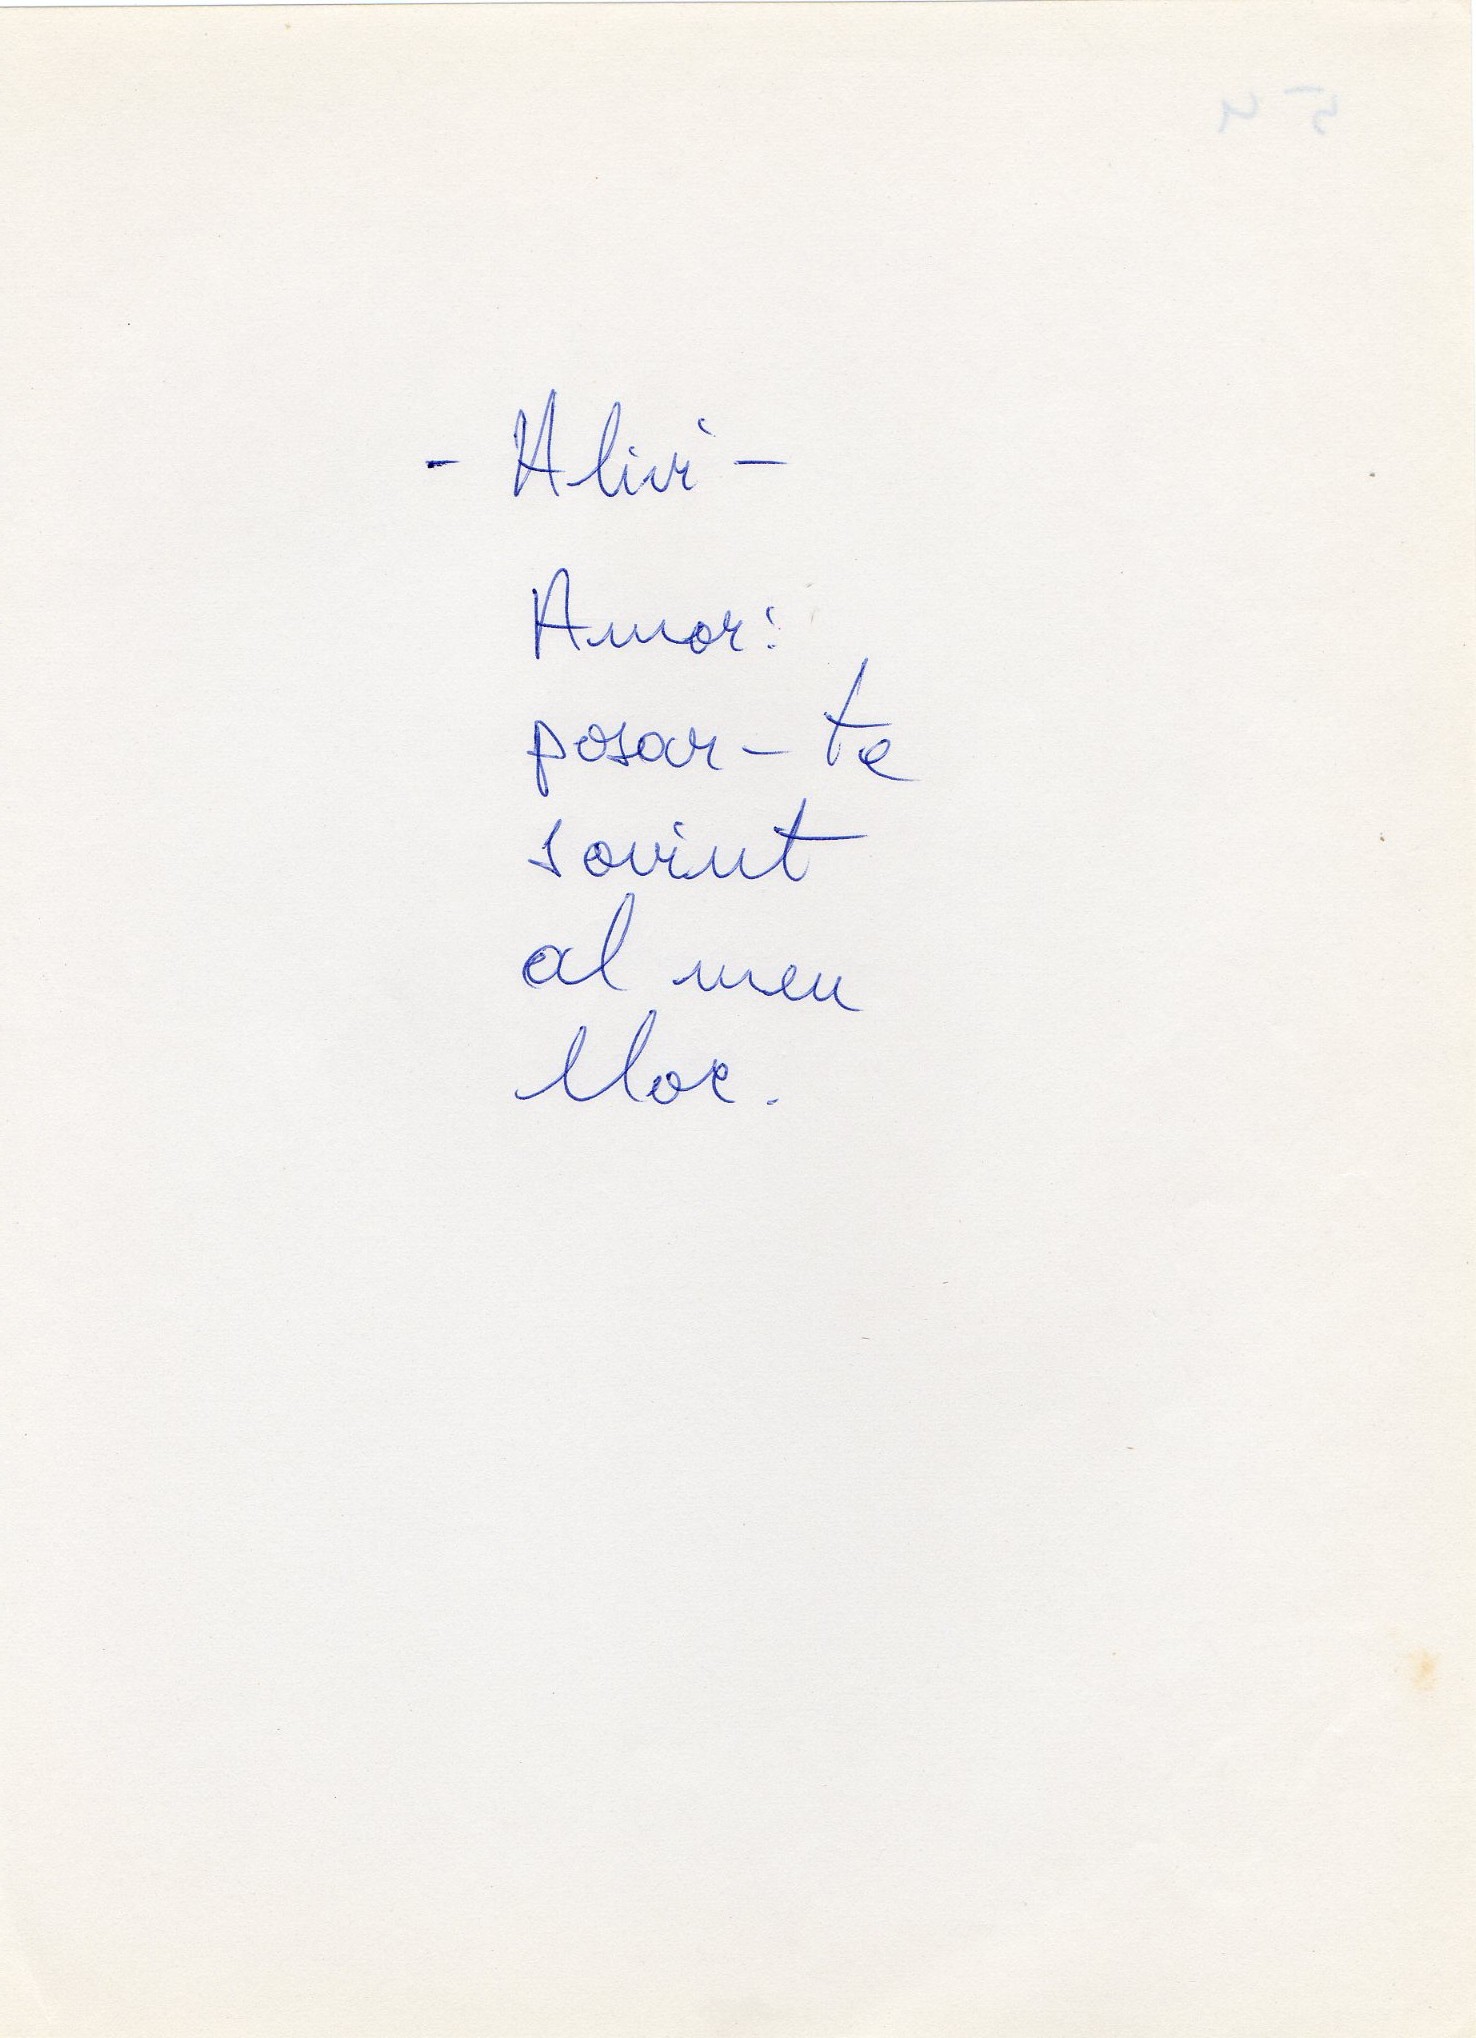 - Alivi -
Amor:
posar-te
sovint
al meu
lloc.